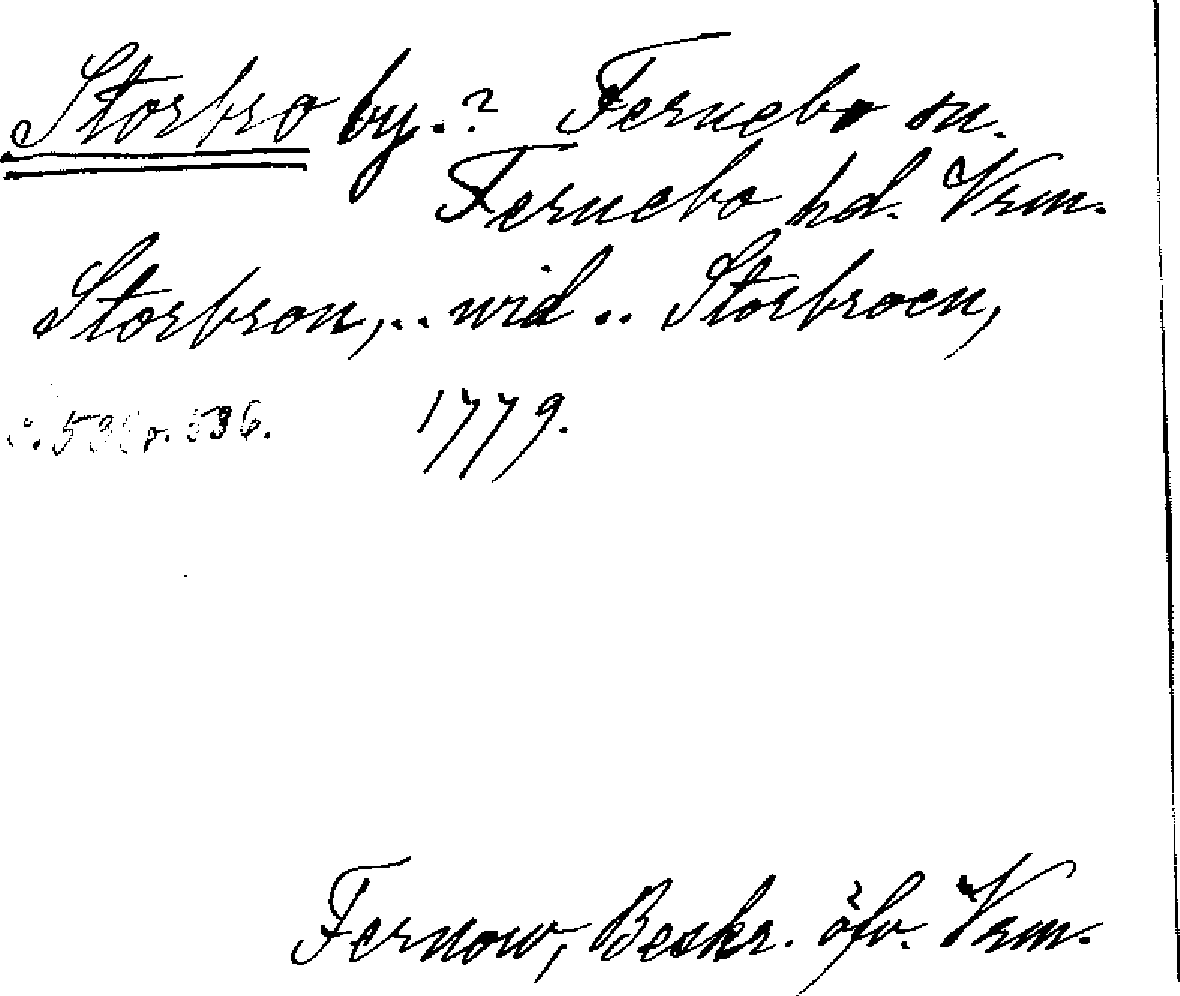 Storbro by.? Fernebo sn.
Fernebo hd. Vrm.
Storbron,.. wid .. Storbroen,
s. 536. 1779.
Fernow, Beskr. öfv. Vrm.